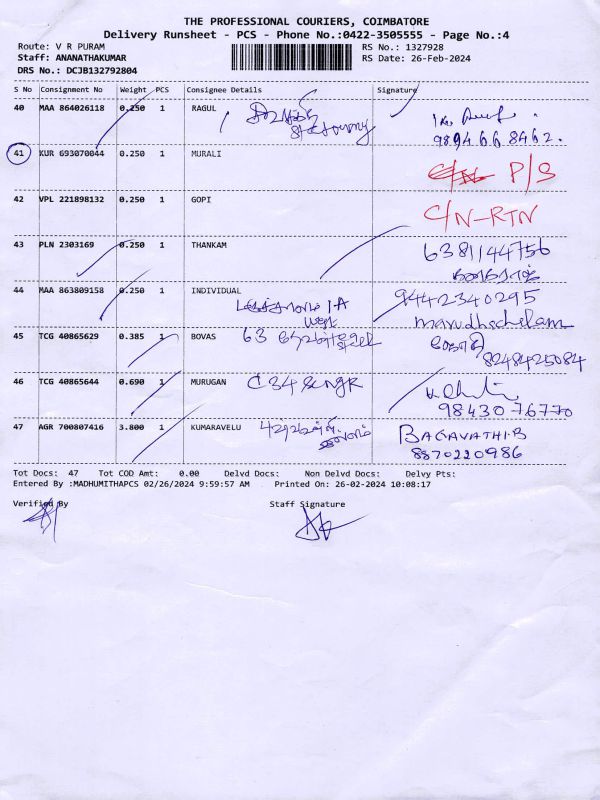 THE PROFESSIONAL COURIERS, COIMBATORE
Delivery Runsheet - PCS - Phone No.:0422-3505555 - Page No.:4
Route: V R PURAM RS No.: 1327928
Staff: ANANATHAKUMAR RS Date: 26-Feb-2024
DRS No.: DCJB132792804
S No Consignment No Weight PCS Consignee Details Signature
40 MAA 864026118 0.250 1 RAGUL
9894668462.
41 KUR 693070044 0.250 1 MURALI
P/S
42 VPL 221898132 0.250 1 GOPI
C/N-RTN
43 PLN 2303169 0.250 1 THANKAM 6381144756
44 MAA 863809158 0.250 1 INDIVIDUAL 9442340295
1-A
west marudhachalam
45 TCG 40865629 0.385 1 BOVAS 63
8248425084
46 TCG 40865644 0.690 1 MURUGAN C34
9843076770
47 AGR 700807416 3.800 1 KUMARAVELU BAGAVATHI.B
8870220986
Tot Docs: 47 Tot COD Amt: 0.00 Delvd Docs: Non Delvd Docs: Delvy Pts:
Entered By :MADHUMITHAPCS 02/26/2024 9:59:57 AM Printed On: 26-02-2024 10:08:17
Verified By Staff Signature